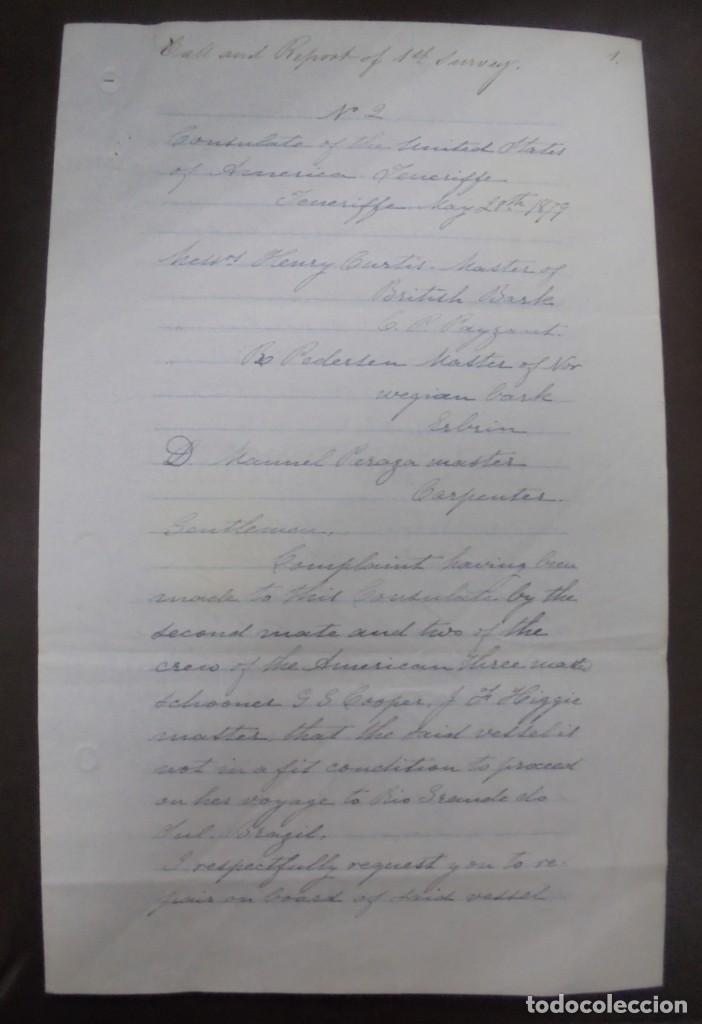 Call and Report of 1st Survey. 1.
No 2
Consulate of the United States
of America Teneriffe
Teneriffe May 28th 1879
Messrs Henry Curtis Master of
British Bark
C. P. Payzant.
Pedersen Master of Nor
wegian bark
D Manuel Peraza master
Carpenter.
Gentlemen,
Complaint having been
made to this Consulate by the
second mate and two of the
crew of the American three mast
schooner G S Cooper, J F Higgie
master, that the said vessel is
not in a fit condition to proceed
on her voyage to Rio Grande do
Sul. Brazil.
I respectfully request you to re-
pair on board of said vessel
todocoleccion